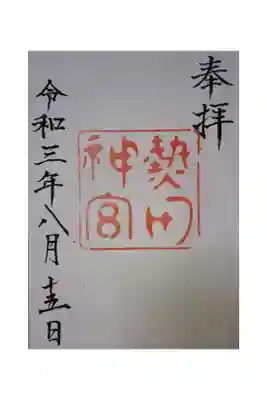 奉拝
熱田
神宮
令和三年八月十五日